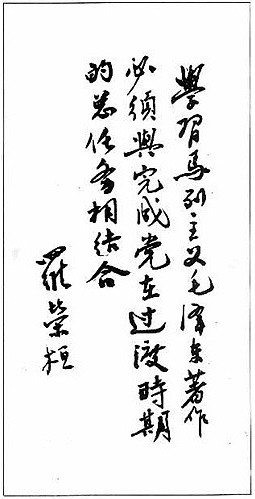 學習馬列主义毛澤东著作
必須與完成党在过渡時期
的总任务相结合
羅荣桓